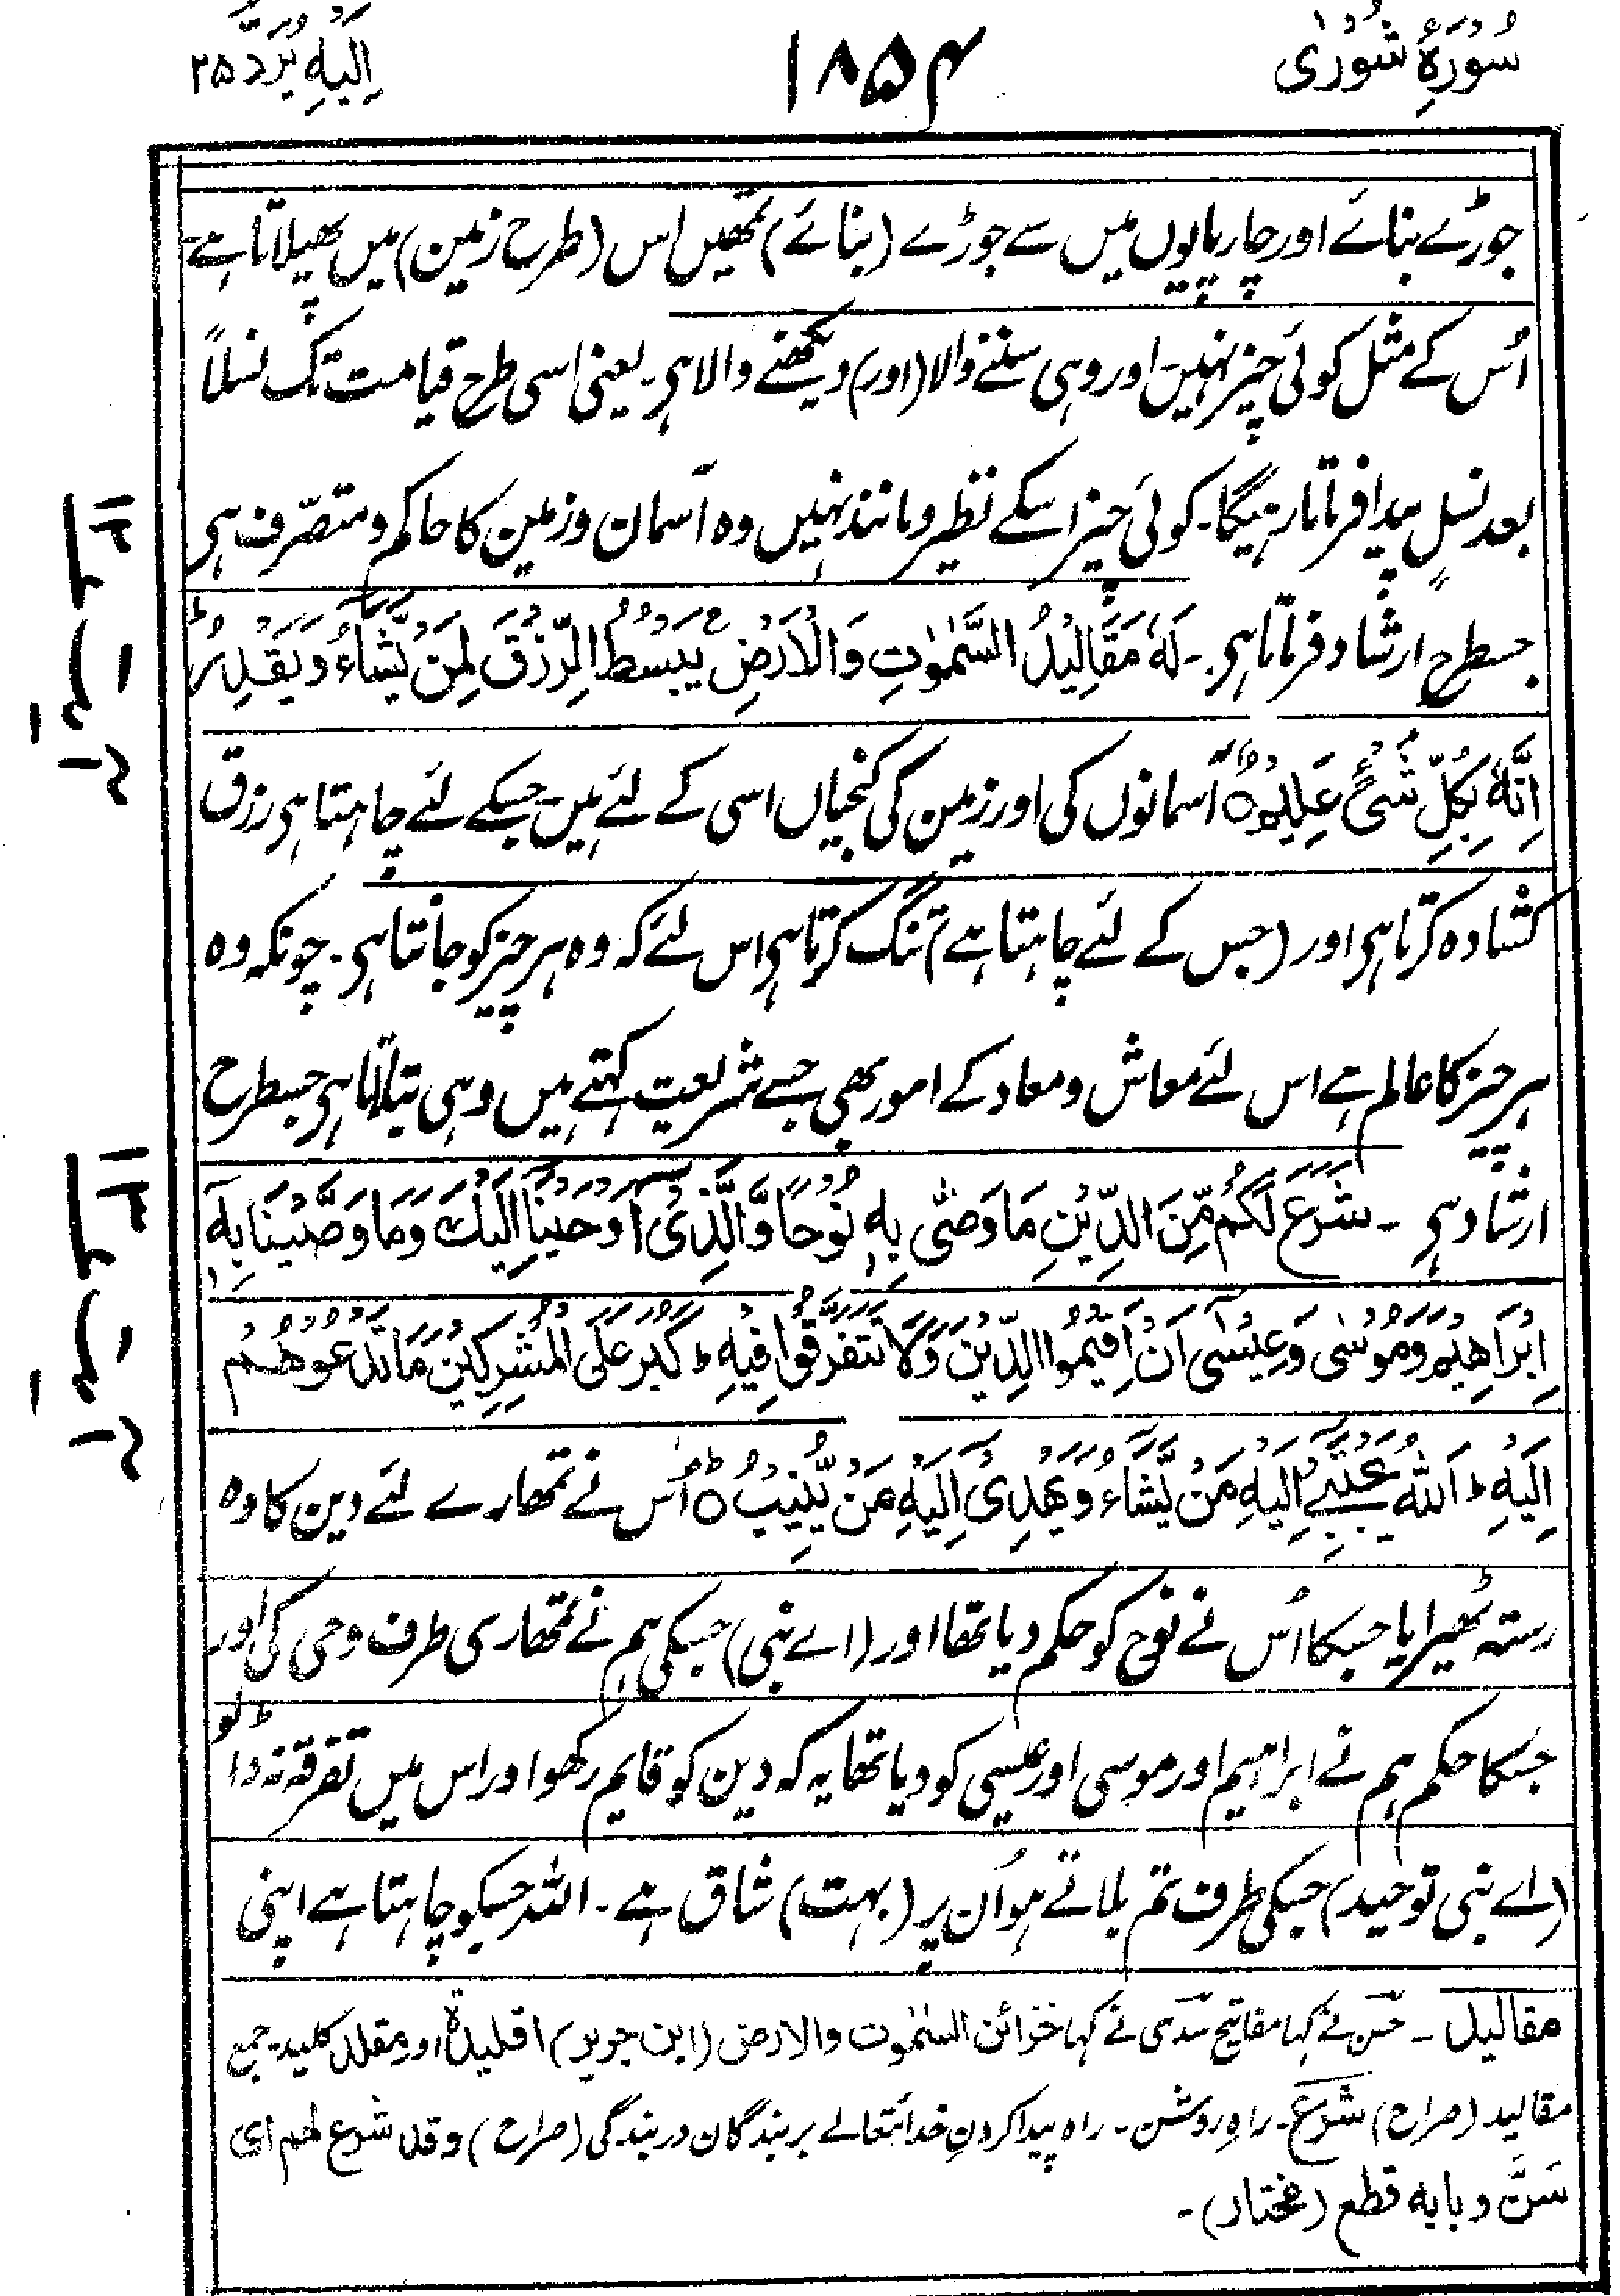 سُوْرَۂِ شُوْرٰی ۱۸۵۴ اِلَیْہِ یُرَدُّ ۲۵
جوڑے بنائے اور چارپایوں میں سے جوڑے (بنائے) تمھیں اس (طرح زمین) میں پھیلاتا ہے
اُس کے مثل کوئی چیز نہیں اور وہی سننے والا (اور) دیکھنے والا ہی۔ یعنی اسی طرح قیامت تک نسلاً
بعد نسلٍ پیدا فرماتا رہیگا۔ کوئی چیز اسکے نظیر و مانند نہیں وہ آسمان و زمین کا حاکم و متصرّف ہی
جسطرح ارشاد فرماتا ہی۔ لَہٗ مَقَالِیْدُ السَّمٰوٰتِ وَالْاَرْضِ ۚ یَبْسُطُ الرِّزْقَ لِمَنْ یَّشَآءُ وَیَقْدِرُ ؕ
اِنَّہٗ بِکُلِّ شَیْءٍ عَلِیْمٌ ○ آسمانوں کی اور زمین کی کنجیاں اسی کے لئے ہیں۔ جسکے لئے چاہتا ہی رزق
کشادہ کرتا ہی اور (جس کے لئے چاہتا ہے) تنگ کرتا ہی اس لئے کہ وہ ہر چیز کو جانتا ہی۔ چونکہ وہ
ہر چیز کا عالم ہے اس لئے معاش و معاد کے امور بھی جسے شریعت کہتے ہیں وہی بتلاتا ہی جسطرح
ارشاد ہی۔ شَرَعَ لَکُمْ مِّنَ الدِّیْنِ مَا وَصّٰی بِہٖ نُوْحًا وَّالَّذِیْٓ اَوْحَیْنَآ اِلَیْکَ وَمَا وَصَّیْنَا بِہٖٓ
اِبْرَاھِیْمَ وَمُوْسٰی وَعِیْسٰٓی اَنْ اَقِیْمُوا الدِّیْنَ وَلَا تَتَفَرَّقُوْا فِیْہِ ؕ کَبُرَ عَلَی الْمُشْرِکِیْنَ مَا تَدْعُوْھُمْ
اِلَیْہِ ؕ اَللّٰہُ یَجْتَبِیْٓ اِلَیْہِ مَنْ یَّشَآءُ وَیَھْدِیْٓ اِلَیْہِ مَنْ یُّنِیْبُ ○ؕ اُس نے تمھارے لئے دین کا وہ
رستہ ٹھیرایا جسکا اُس نے نوح کو حکم دیا تھا اور (اے نبی) جسکی ہم نے تمھاری طرف وحی کی اور
جسکا حکم ہم نے ابراہیم اور موسی اور عیسی کو دیا تھا یہ کہ دین کو قایم رکھو اور اس میں تفرقہ نہ ڈالو
(اے نبی توحید) جسکی طرف تم بلاتے ہو اُن پر (بہت) شاق ہے۔ اللہ جسکو چاہتا ہے اپنی
مقالید۔ حسن نے کہا مفاتیح سدّی نے کہا خزائن السمٰوت والارض (ابن جریر) اقلیدۃ او مقلد کلید۔ جمع
مقالید (صراح) شرع۔ راہِ روشن۔ راہ پیدا کردنِ خدائتعالے بر بندگان در بندگی (صراح) وقد شرع لھم ای
سَنَّ وبابہ قطع (مختار)۔